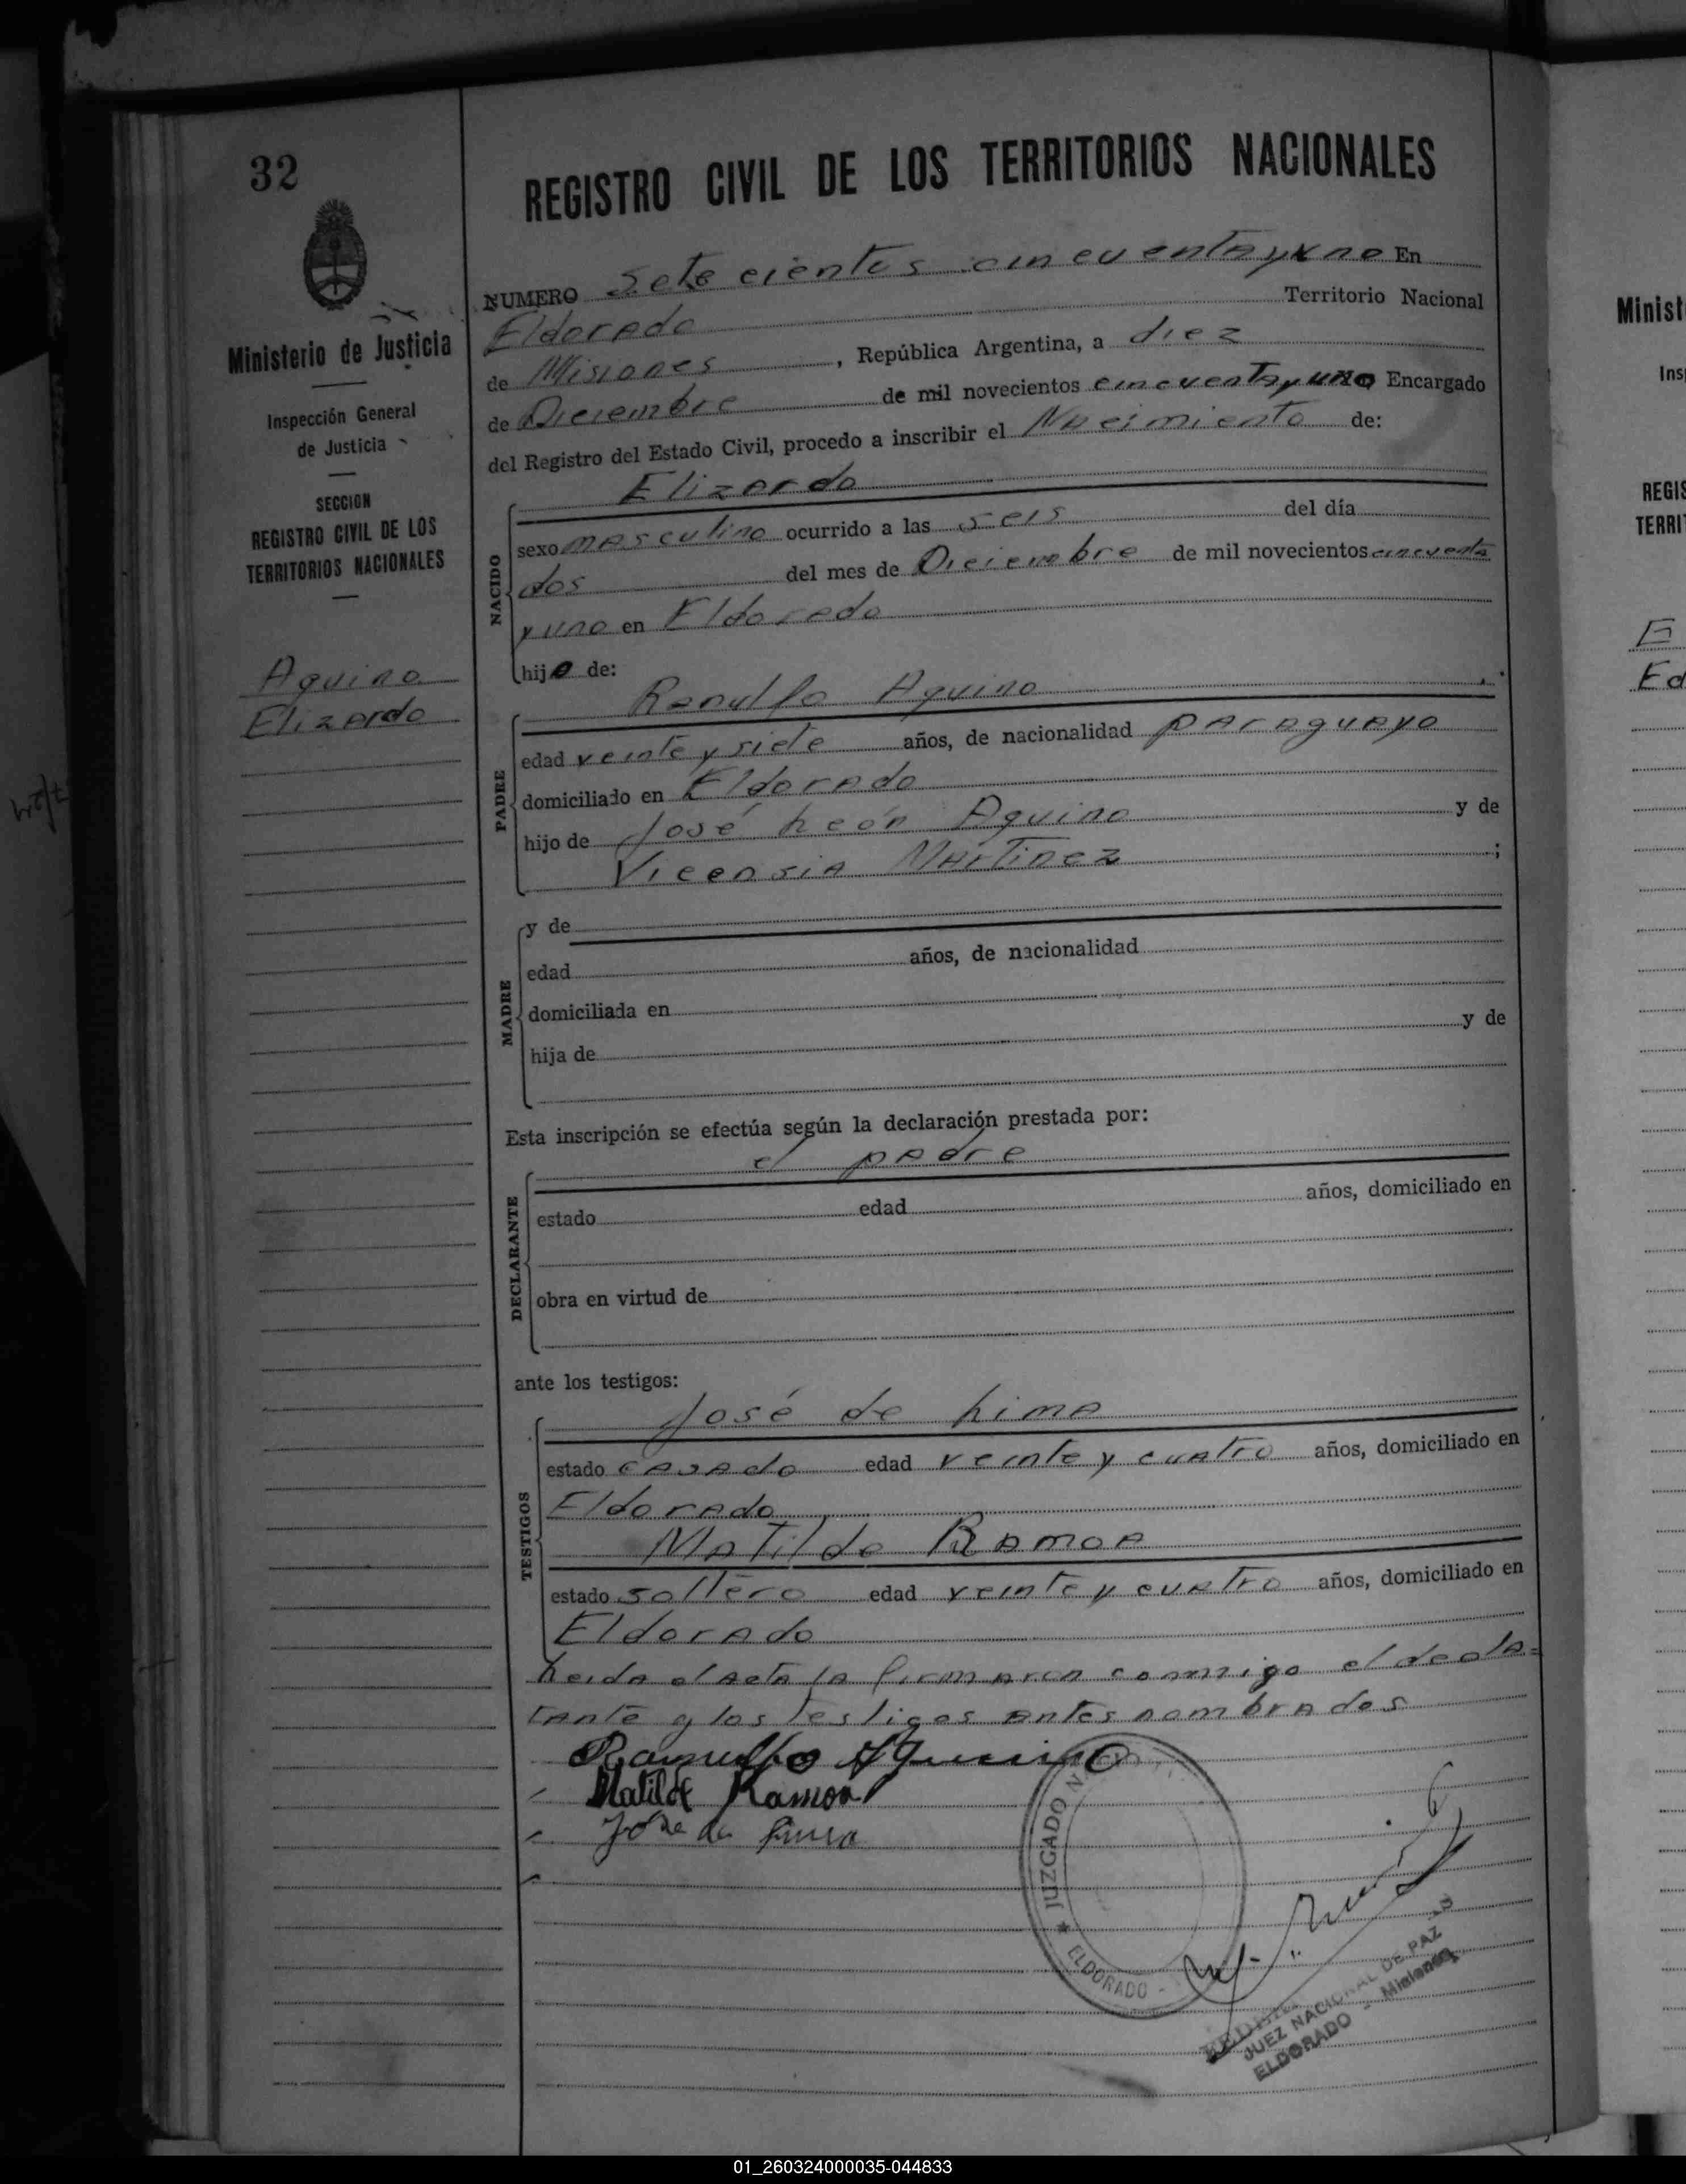 32
Ministerio de Justicia
Inspección General
de Justicia
SECCION
REGISTRO CIVIL DE LOS
TERRITORIOS NACIONALES
Aquino
Elizardo
REGISTRO CIVIL DE LOS TERRITORIOS NACIONALES
NUMERO Sete cientos cincuenta y uno En
Eldorado Territorio Nacional
de Misiones, República Argentina, a diez
de Diciembre de mil novecientos cincuenta y uno Encargado
del Registro del Estado Civil, procedo a inscribir el Nacimiento de:
NACIDO
Elizardo
sexo masculino ocurrido a las seis del día
dos del mes de Diciembre de mil novecientos cincuenta
y uno en Eldorado
hijo de:
PADRE
Ranulfo Aquino
edad veinte y siete años, de nacionalidad paraguayo
domiciliado en Eldorado
hijo de José León Aquino y de
Vicensia Martinez ;
MADRE
y de
edad años, de nacionalidad
domiciliada en
hija de y de
Esta inscripción se efectúa según la declaración prestada por:
DECLARANTE
el padre
estado edad años, domiciliado en
obra en virtud de
ante los testigos:
TESTIGOS
José de Lima
estado casado edad veinte y cuatro años, domiciliado en
Eldorado
Matilde Ramoa
estado soltero edad veinte y cuatro años, domiciliado en
Eldorado
Leida el acta la firmaron conmigo el decla=
rante y los testigos antes nombrados
Ranulfo Aquino
Matilde Ramoa
Jose de Lima
JUZGADO N
ELDORADO -
JUEZ NACIONAL DE PAZ
ELDORADO - Misiones
Minist
Ins
REGIS
TERRI
E
Ed
01_260324000035-044833